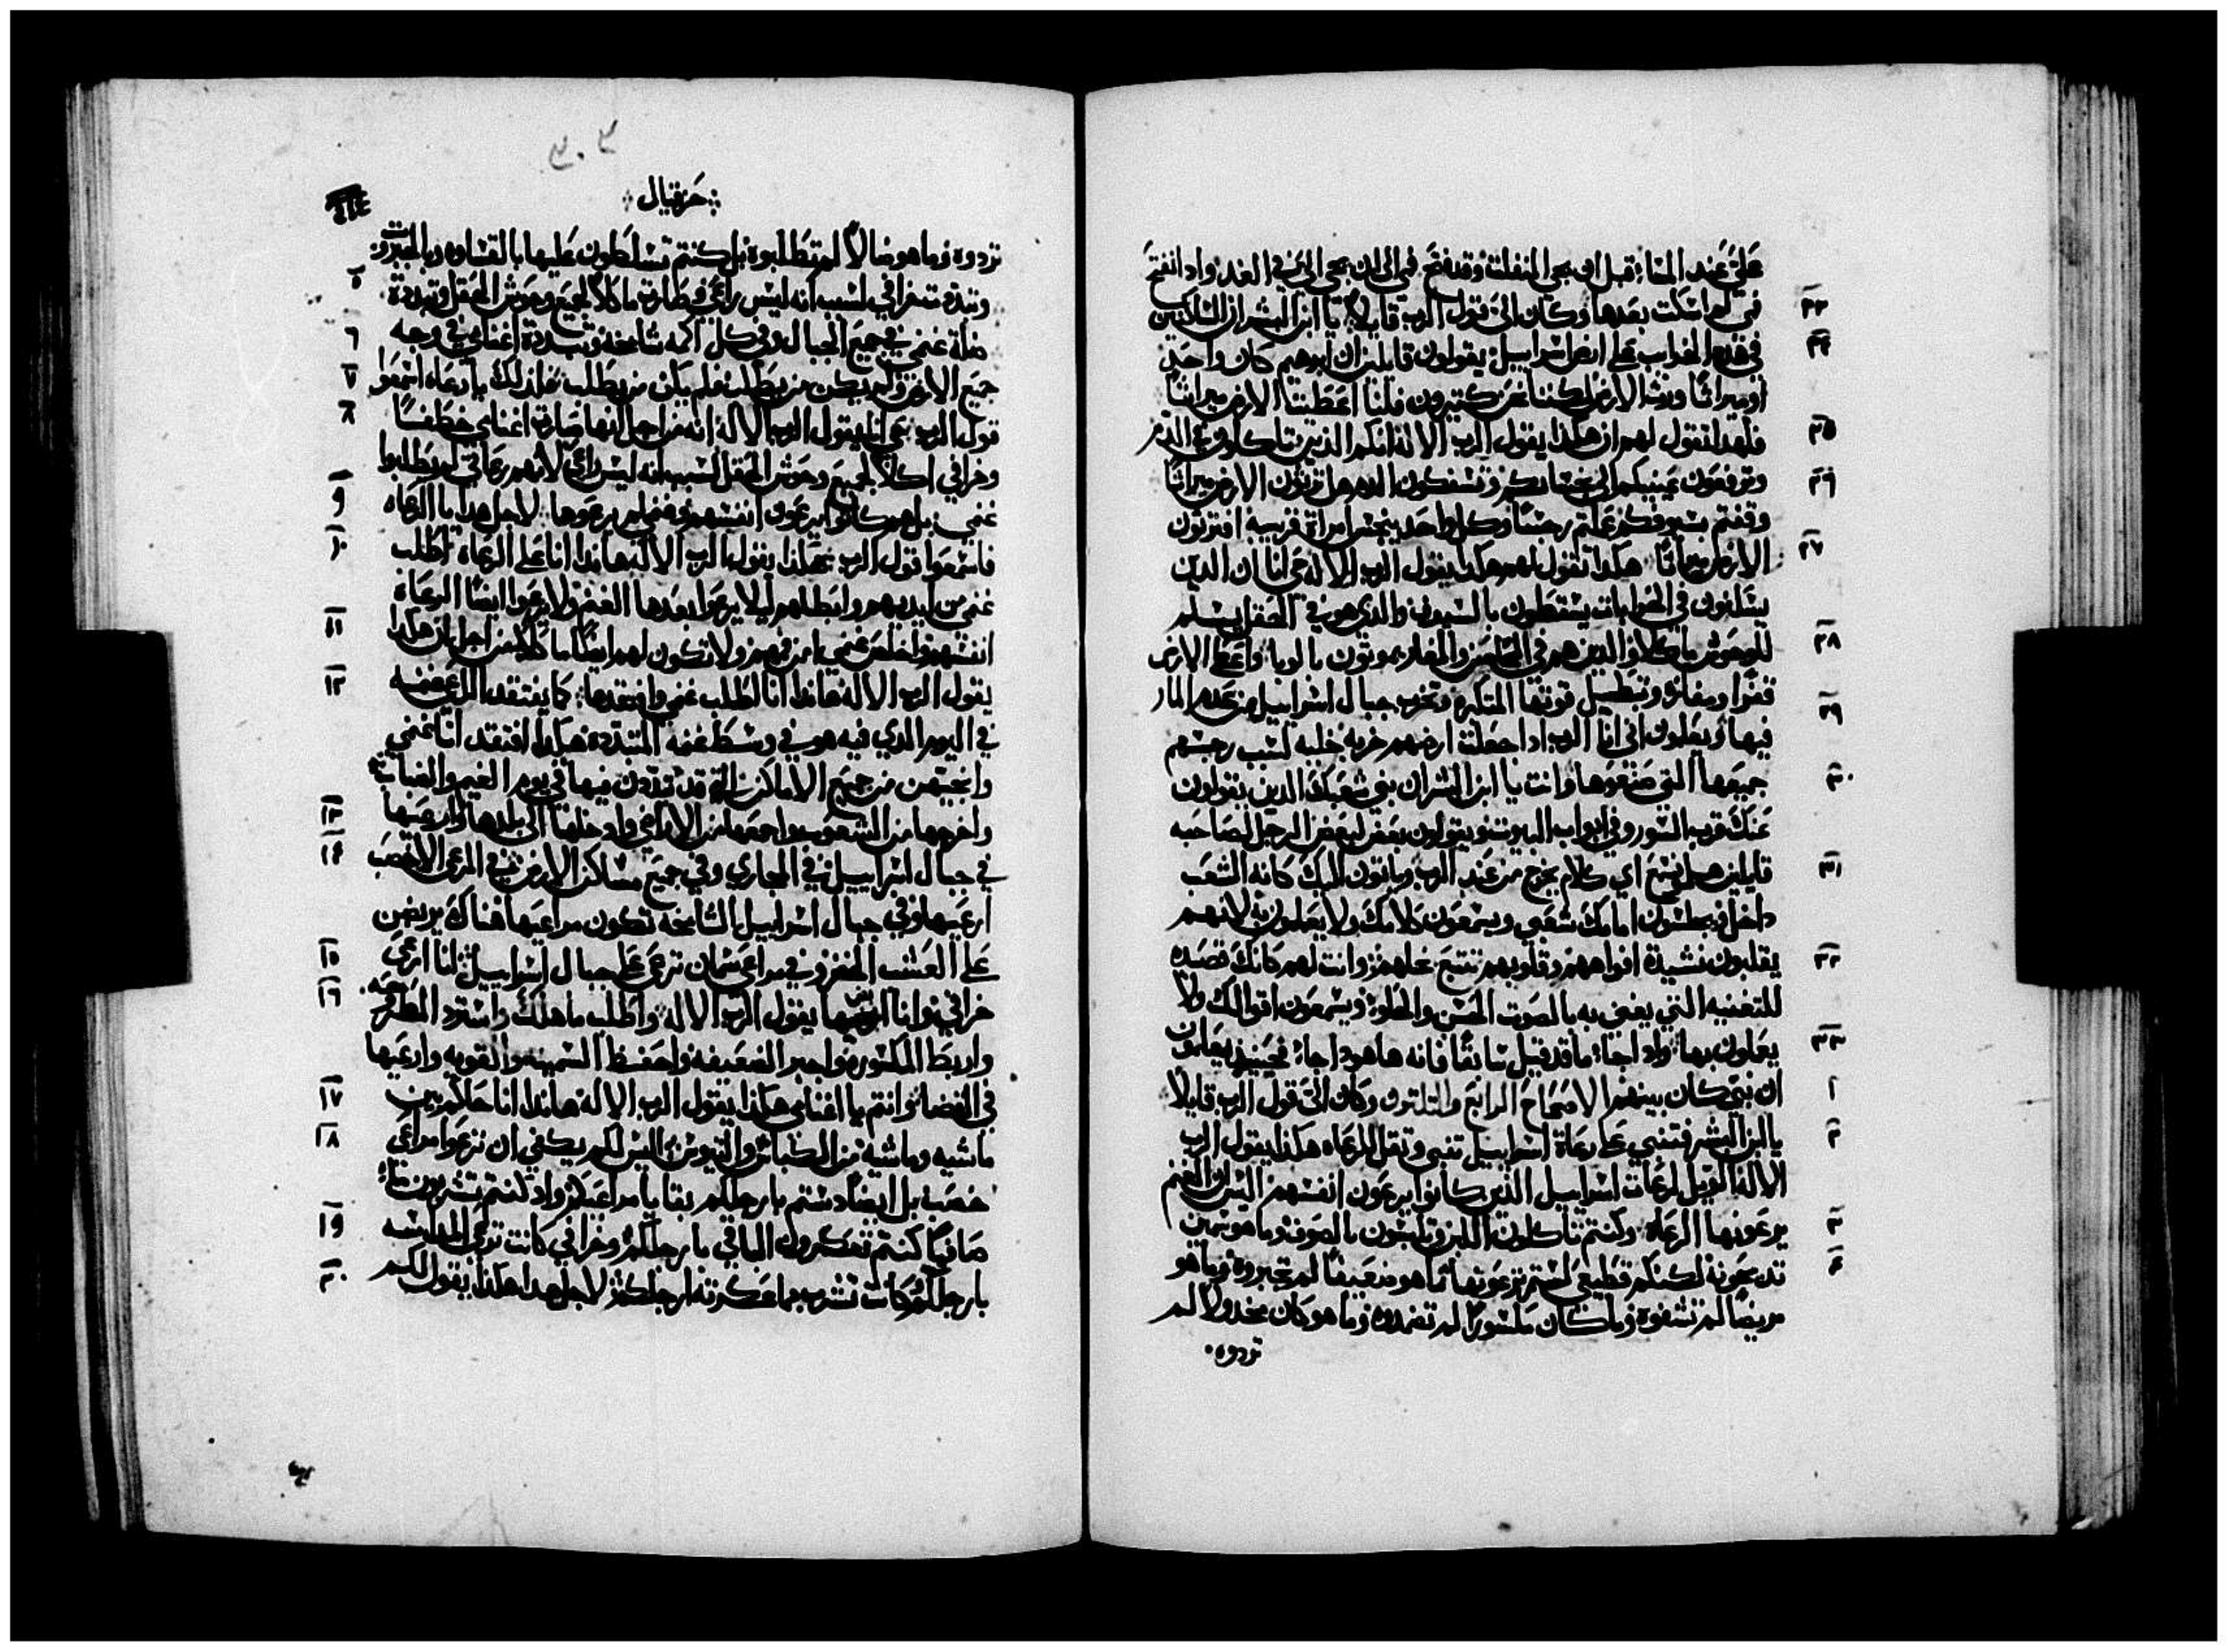 علىَّ عند المسَاء قبل ان يجي المنفلت وقد فتح فمي الى ان يجي اليَّ في الغد واد انفتح
٢٣ فمي لم اسكت بعدها وكان اليَّ قول الرب قايلاً
٢٤ يا ابن البشر ان الساكنين
في هذه الخراب على ارض اسراييل يقولون قايلين ان ابرهيم كان واحد
او ميراثًا ورث الارض لكننا نحن كتيرون فلنا اعطيت الارض ميراثًا
٢٥ فلهدا تقول لهم ان هكذا يقول الرب الاله انكم الذين تاكلون على الدم
٢٦ وترفعون عينيكم الى نجاساتكم وتسفكون الدم هل ترثون الارض ميراثًا
وقفتم بسيوفكم عملتم رجسًا وكل واحد ينجس امراة قريبه افترثون
٢٧ الارض ميراثًا هكذا تقول لهم هكذا يقول الرب الاله حي انا ان الدين
يسكنون في الخرابات يسقطون بالسيف والدي هو في الحقل يسلم
٢٨ للوحوش ماكلاً والدين هم في المحاصن والمغاير يموتون بالوبا واعطي الارض
قفرًا ومفازه وتبطل قوتها المتكبره وتخرب جبال اسراييل من عدم المار
٢٩ فيها ويعلمون اني انا الرب ادا جعلت ارضهم خربه خليه لسبب رجسهم
٣٠ جميعها التي صنعوها وانت يا ابن البشر ان بني شعبك الدين يقولون
عنك قرب السور وفي ابواب البيوت ويقولون بعض لبعض الرجل لصاحبه
٣١ قايلين هلم نسمع اي كلام يخرج من عند الرب وياتون اليك كانه الشعب
داخل ويجلسون امامك شعبي ويسمعون كلامك ولا يعملون به لانهم
٣٢ يقلبون نشيدة افواههم وقلوبهم تتبع بخلهم وانت لهم كانك قصيده
للتغنيه التي يغنى به بالصوت الحسن والحلو ويسمعون اقوالك ولا
٣٣ يعملون بها واد اجاء ما قد قيل سابقًا فانه ها هود اجاء فحينيد يعلمون
١ ان نبي كان بينهم الاصحاح الرابع والتلتون وكان اليَّ قول الرب قايلاً
٢ يا ابن البشر فتنبي على رعاة اسراييل تنبي وتقل للرعاه هكذا يقول الرب
الاله الويل لرعات اسراييل الذين كانوا يرعون انفسهم اليس ان الغنم
٣ يرعونها الرعاه وكنتم تاكلون اللبن وتلبسون بالصوف وما هو سمين
٤ تدبحونه لكنكم قطيعي لستم ترعونها ما هو ضعيفًا لم تجبروه وما هو
مريضًا لم تشفوه وما كان مكسورًا لم تضمدوه وما هو كان مخدولاً لم
تردوه
حزقيال
تردوه وما هو ضالاً لم تطلبوه بل كنتم تسلطون عليها بالقساوه وبالجبروت
٥ وتبددت خرافي لسبب انه ليس راعي وصارت ماكلاً لجميع وحوش الحقل وتبددت
٦ ضلت غنمي في جميع الجبال وفي كل اكمه شامخه وتبددت اغنامي في وجه
٧ جميع الارض ولم يكن من يطلب فلم يكن من يطلب فلذلك يا رعاه اسمعوا
٨ قول الرب حي انا يقول الرب الاله انه من اجل انها صارت اغنامي خطفًا
وخرافي اكلاً لجميع وحوش الحقل لسبب انه ليس راعي لانهم رعاتي لم يطلبوا
٩ غنمي بل هم كانوا يرعون انفسهم وغنمي لم يرعوها لاجل هدا يا الرعاه
١٠ فاسمعوا قول الرب هكذا يقول الرب الاله هاندا انا على الرعاه اطلب
غنمي من ايديهم وابطلهم ليلا يرعوا بعدها الغنم ولا يرعوا ايضًا الرعاة
١١ انفسهم واخلص غنمي من فمهم ولا تكون لهم ايضًا ماكلاً من اجل ان هكدا
١٢ يقول الرب الاله هاندا انا اطلب غنمي وافتقدها كما يفتقد الراعي غنمه
في اليوم الدي فيه هو في وسط غنمه المتبدده هكدا افتقد انا غنمي
وانجيهن من جميع الاماكن التي قد تبددن فيها في يوم الغيم والضباب
١٣ واخرجها من الشعوب واجمعها من الاراضي وادخلها الى بلدها وارعيها
١٤ في جبال اسراييل في المجاري وفي جميع مساكن الارض في المرعى الاخصب
ارعيها وفي جبال اسراييل الشامخه تكون مراعيها هناك يربضن
١٥ على العشب المخضر وفي مراعي سمان ترعى على جبال اسراييل انا ارعى
١٦ خرافي وانا اربضها يقول الرب الاله واطلب ما هلك واسترد المطروحه
واربط المكسوره واجبر الضعيفه واحفظ السمينه والقويه وارعيها
١٧ في القضا وانتم يا اغنامي هكذا يقول الرب الاله هاندا انا حاكم بين
١٨ ماشيه وماشيه من الكباش والتيوس اليس لكم يكفي ان ترعوا مراعي
خصب بل ايضًا دستم بارجلكم بقايا مراعيكم واد كنتم تشربون ماء
١٩ صافيًا كنتم تعكرون الباقي بارجلكم وخرافي كانت ترعى المداسه
٢٠ بارجلكم وكانت تشرب مما عكرته ارجلكم لاجل هدا هكذا يقول لكم